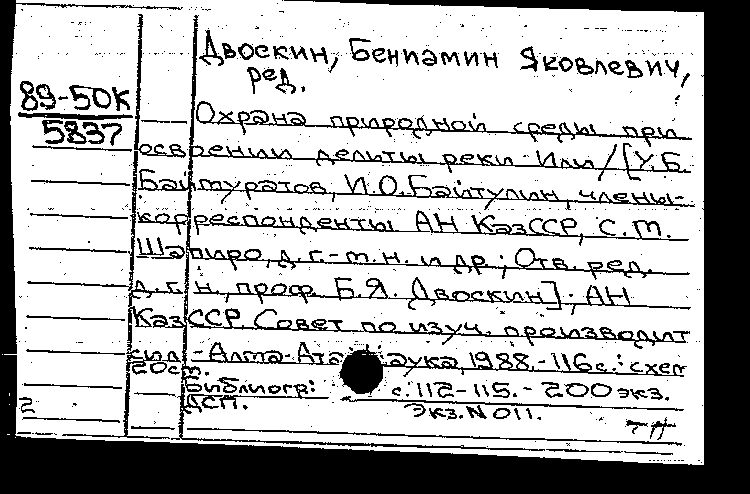 Двоскин, Бениамин Яковлевич,
ред.
89-50К
5837
Охрана природной среды при
освоении дельты реки Или / [У.Б.
Баймуратов, И.О. Байтулин, члены-
корреспонденты АН КазССР, С.М.
Шапиро, д.г.-м.н. и др.; Отв. ред.
д.г.н., проф. Б.Я. Двоскин]; АН
КазССР. Совет по изуч. производит
сил. - Алма-Ата: Наука, 1988. - 116 с.: схем
20 см.
Библиогр: с. 112-115. - 200 экз.
ДСП. Экз. N 011.
2